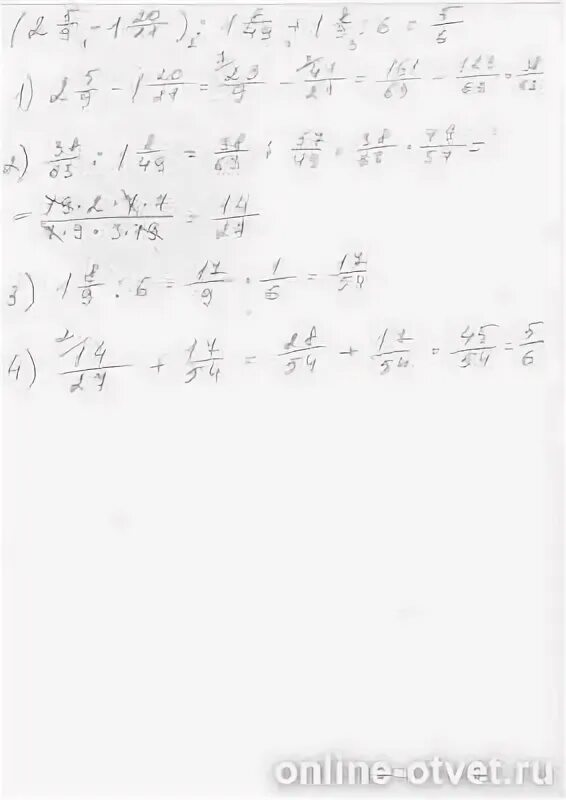 (2 5/9 - 1 20/21) : 1 8/49 + 1 8/9 : 6 = 5/6
1) 2 5/9 - 1 20/21 = 23/9 - 41/21 = 161/63 - 123/63 = 38/63
2) 38/63 : 1 8/49 = 38/63 : 57/49 = 38/63 · 49/57 =
= 19·2·7·7/7·9·3·19 = 14/27
3) 1 8/9 : 6 = 17/9 · 1/6 = 17/54
4) 14/27 + 17/54 = 28/54 + 17/54 = 45/54 = 5/6
online-otvet.ru